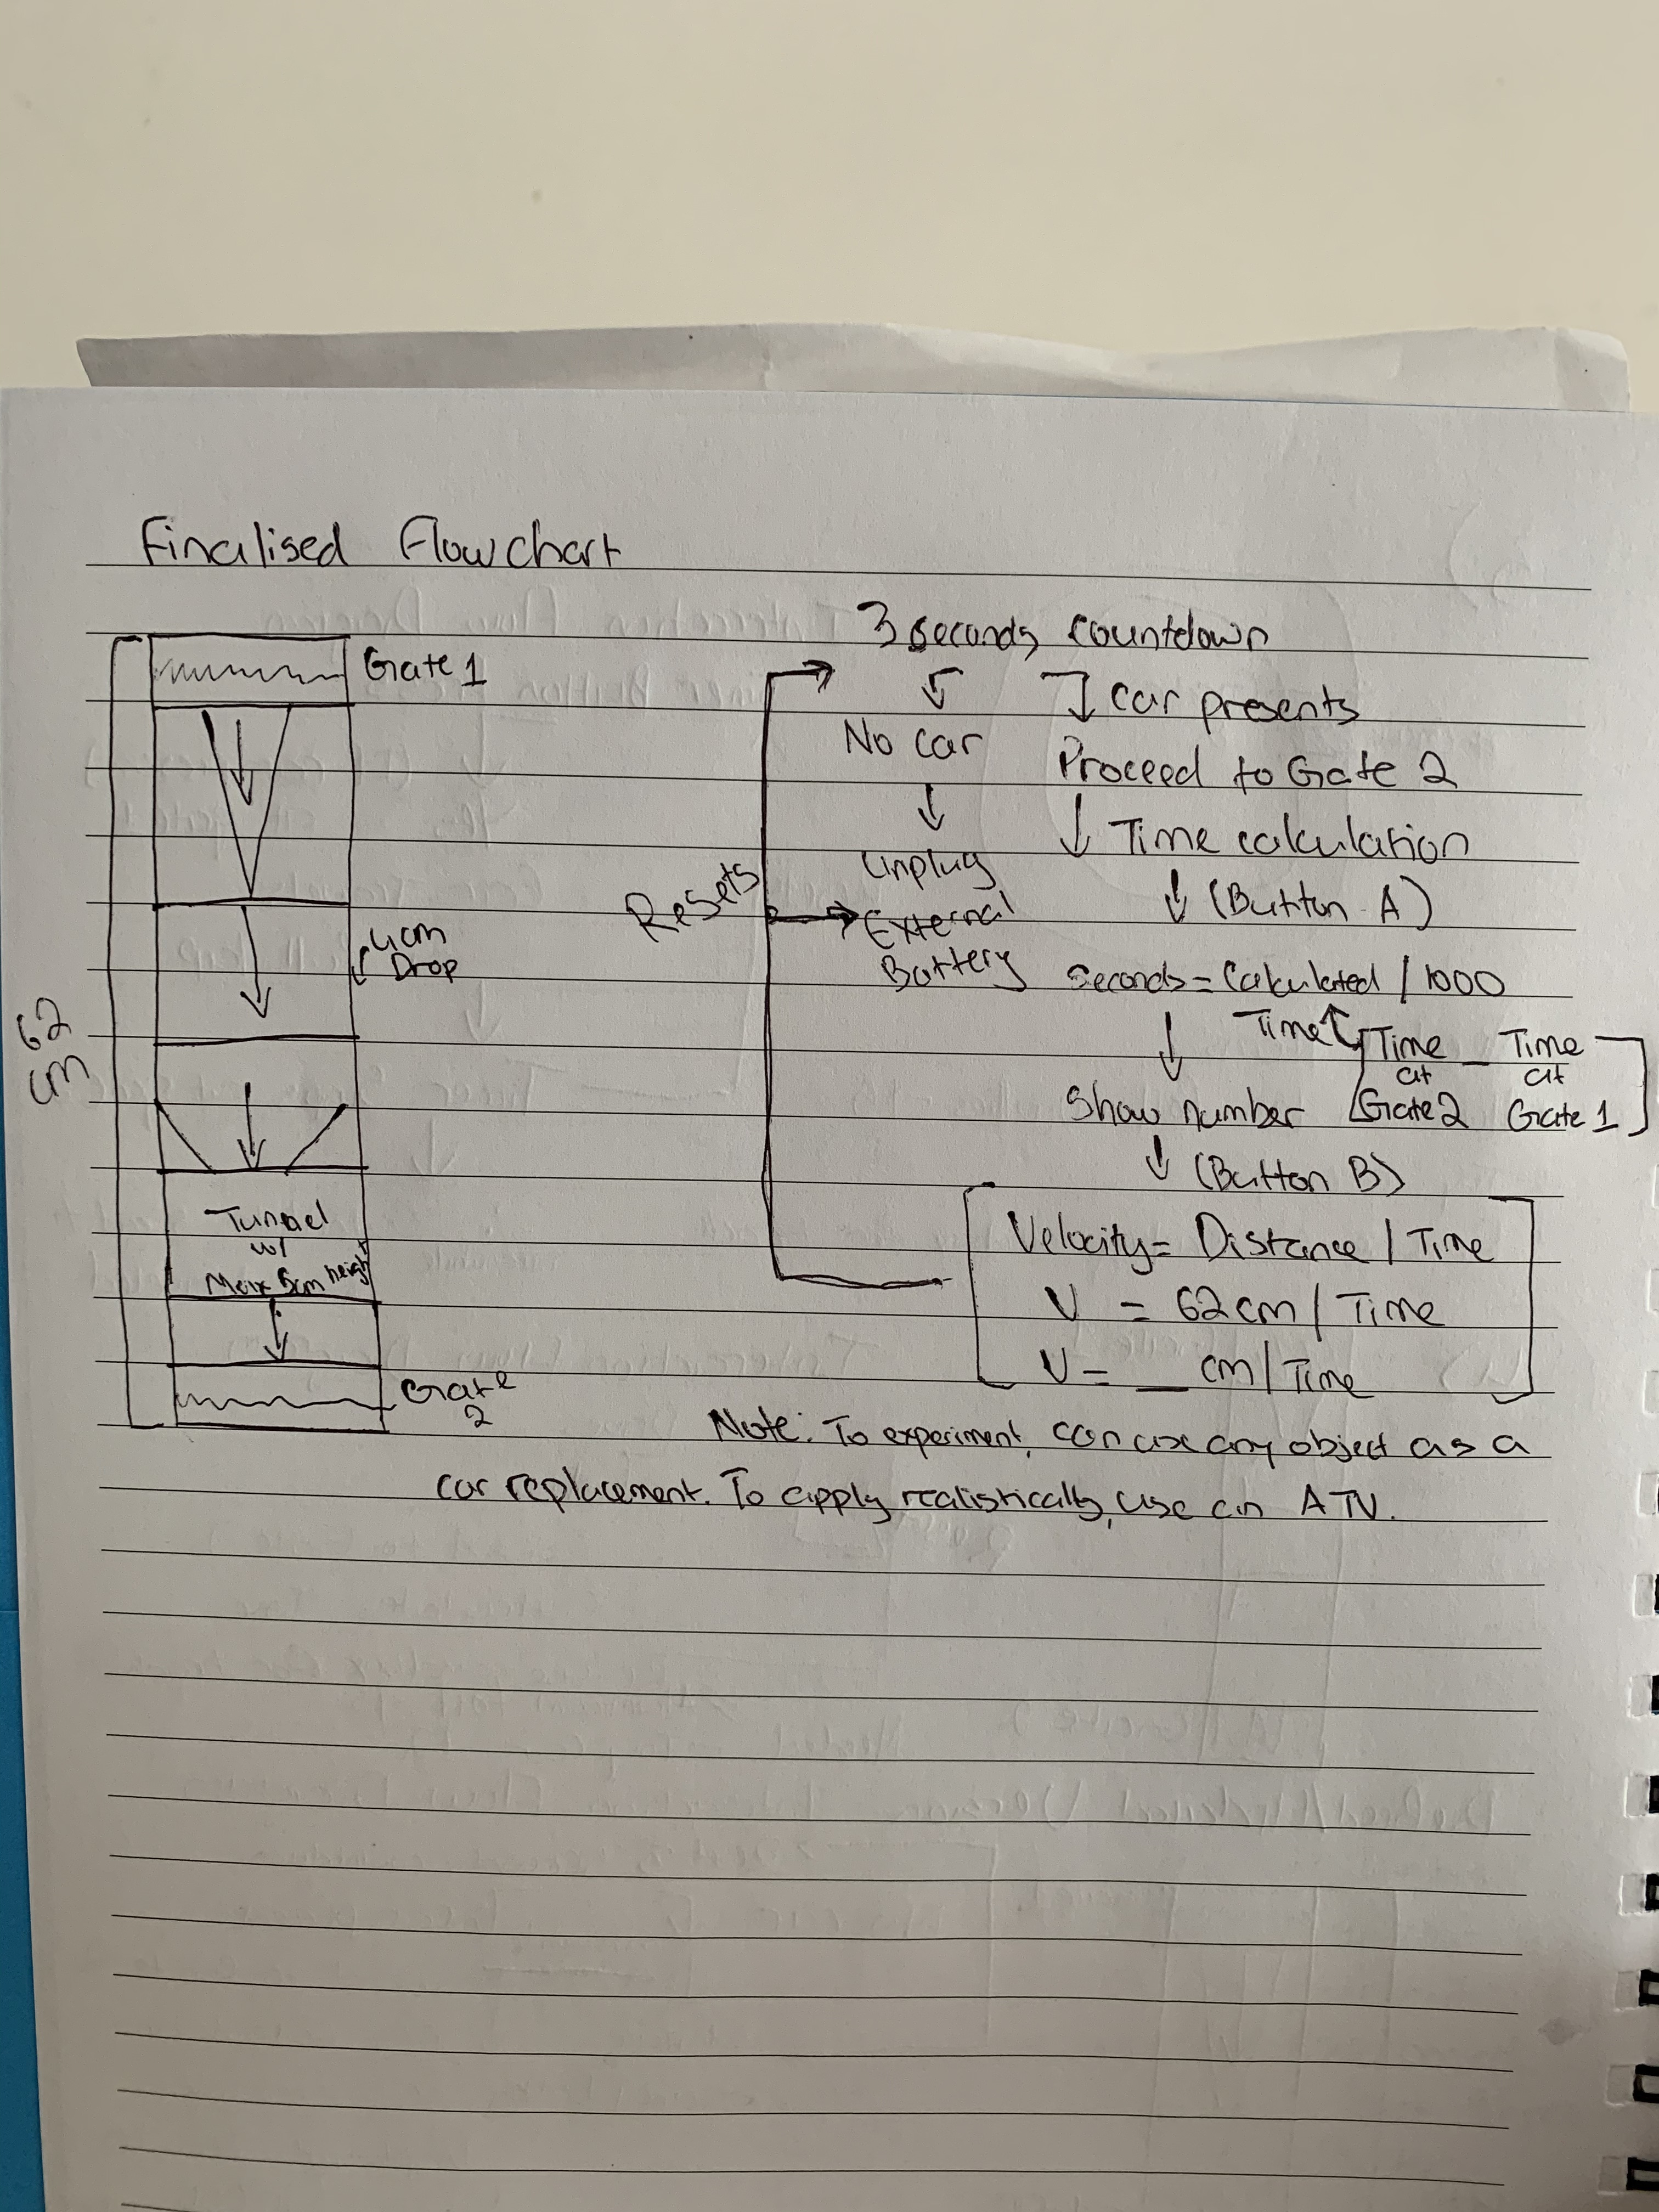 Finalised Flowchart
Gate 1
4cm
Drop
62
cm
Tunnel
w/
Max 5cm height
Gate
2
3 seconds countdown
No car
Unplug
External
Battery
Resets
Car presents
Proceed to Gate 2
Time calculation
(Button A)
Seconds = Calculated / 1000
Time
Time - Time
at at
Gate 2 Gate 1
Show number
(Button B)
Velocity = Distance / Time
V = 62cm / Time
V = __ cm / Time
Note: To experiment, can use any object as a
car replacement. To apply realistically, use an ATV.